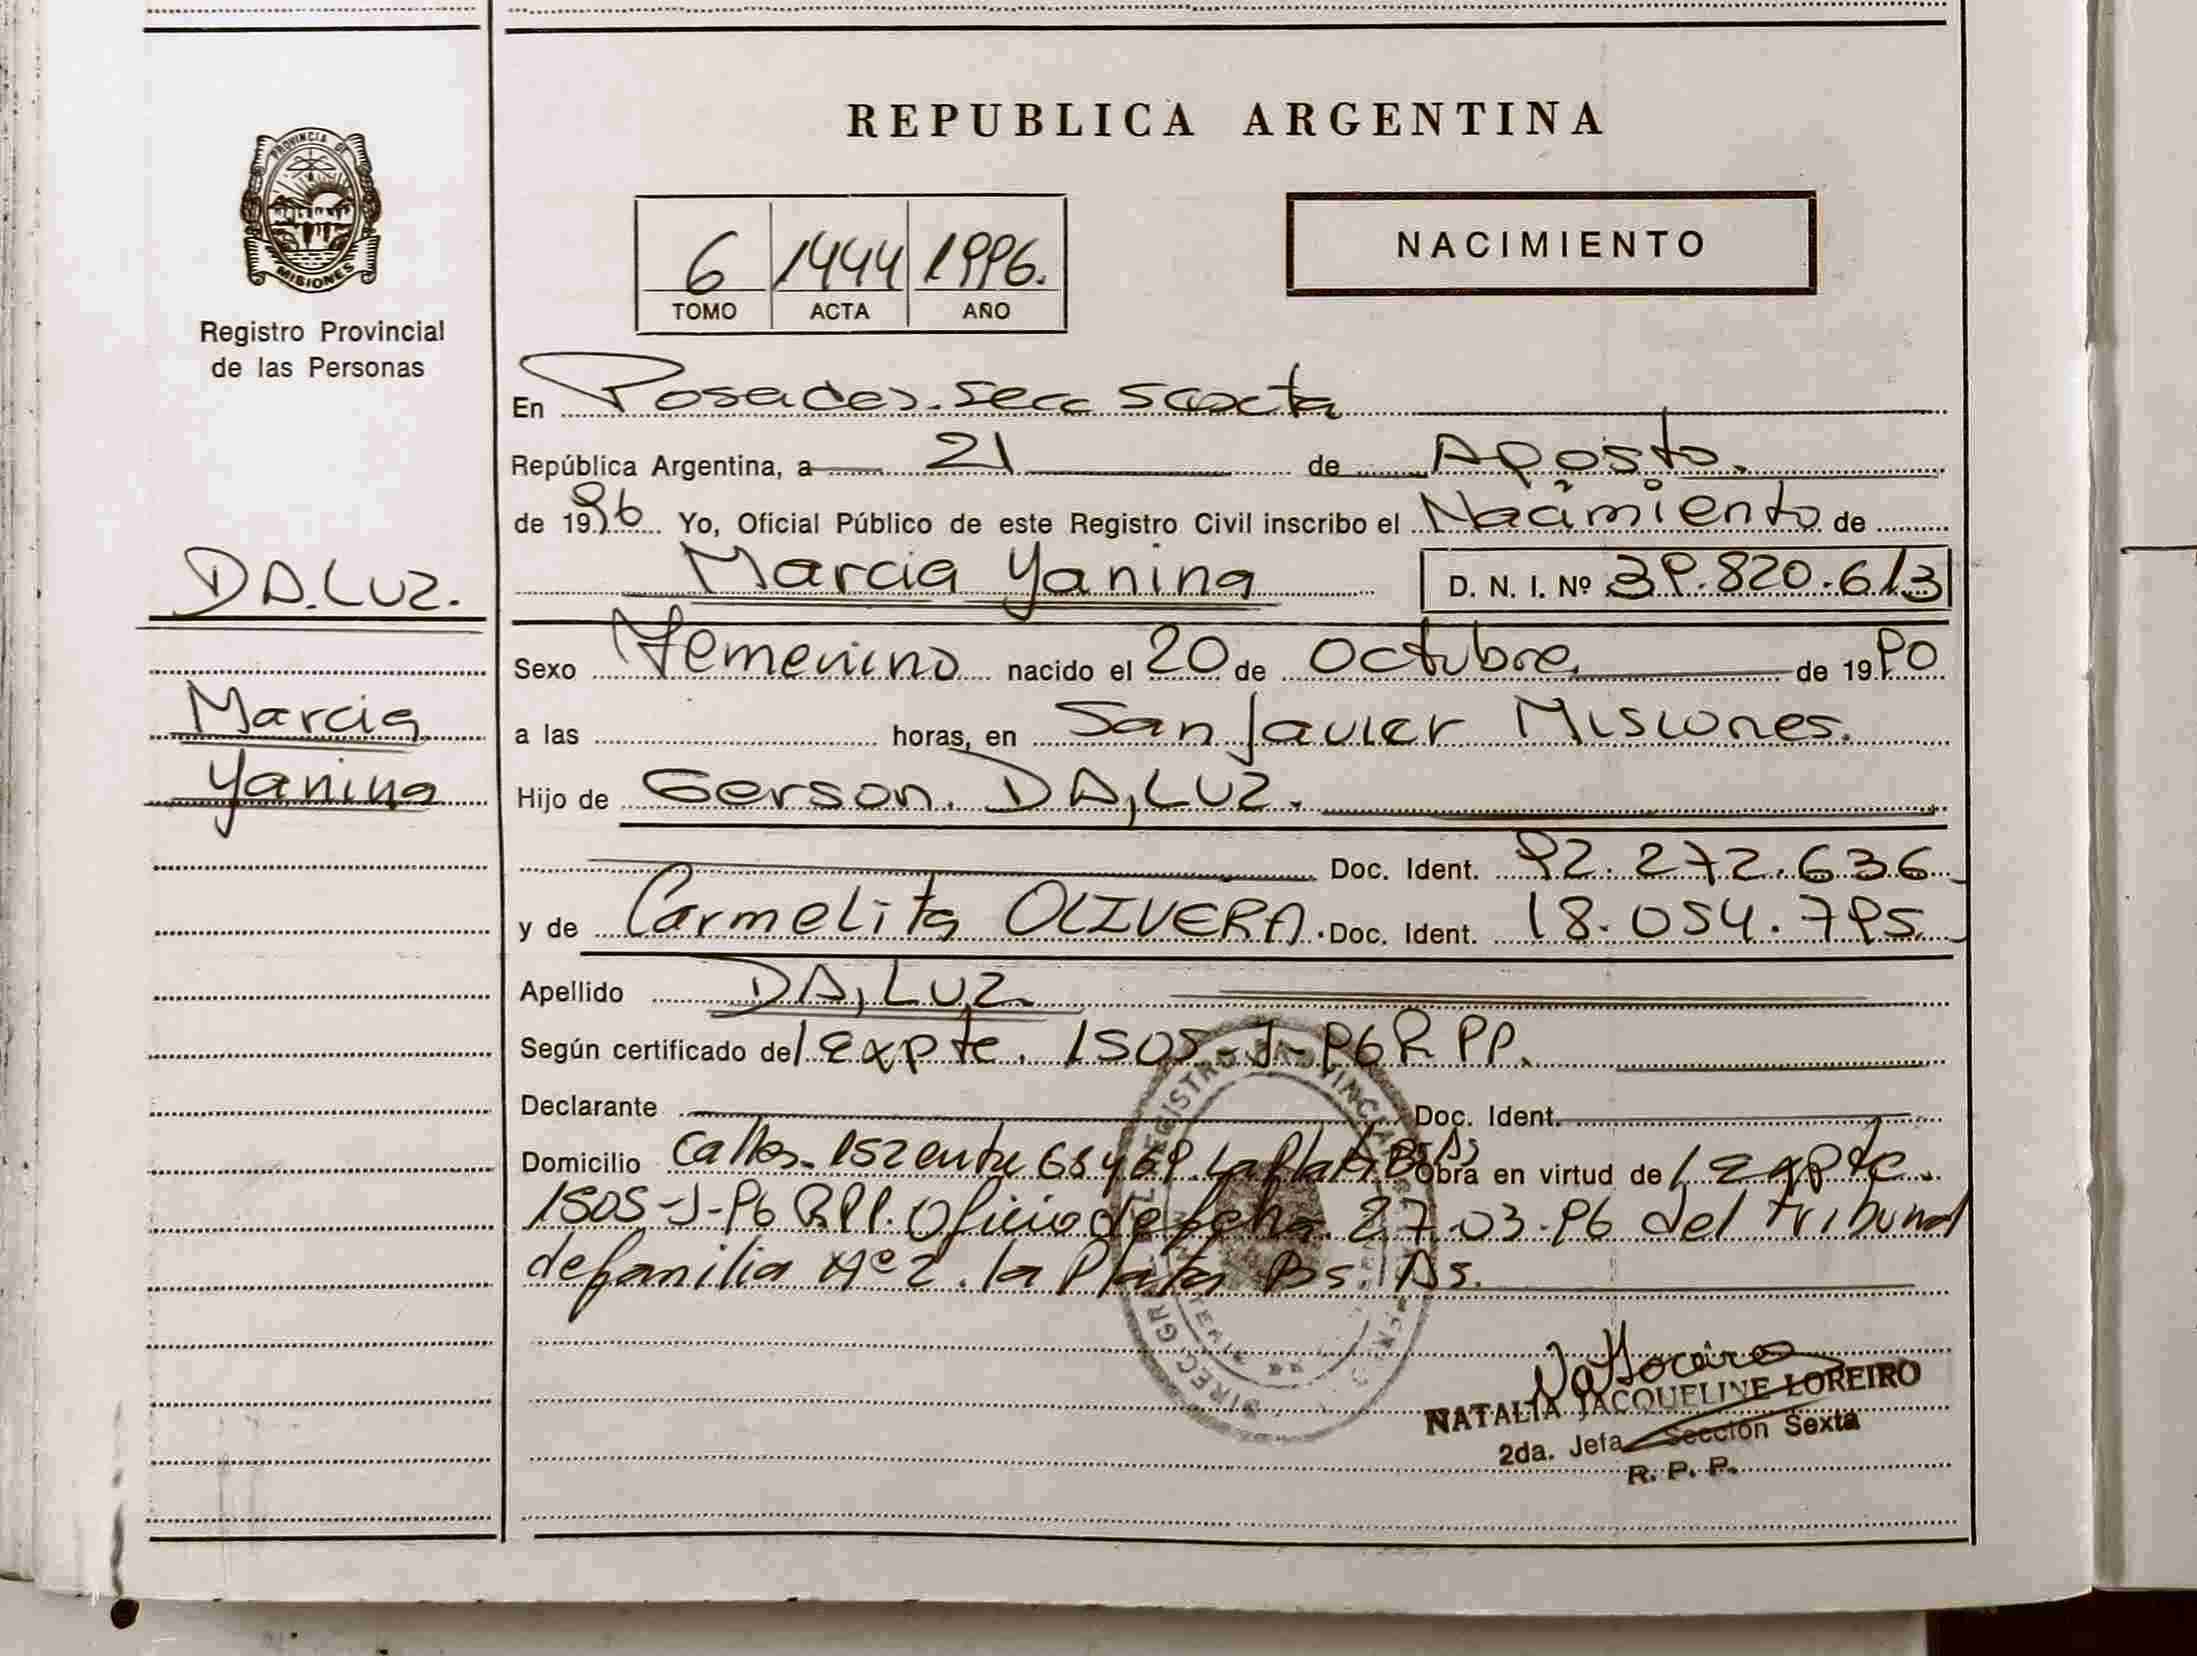 REPUBLICA ARGENTINA
PROVINCIA DE
MISIONES
Registro Provincial
de las Personas
6 1444 1996.
TOMO ACTA AÑO
NACIMIENTO
En Posadas. Secc Sexta
República Argentina, a 21 de Agosto.
de 1996 Yo, Oficial Público de este Registro Civil inscribo el Nacimiento de
Marcia Yanina D. N. I. Nº 39.820.613
DA.LUZ.
Marcia
Yanina
Sexo Femenino nacido el 20 de Octubre. de 1990
a las horas, en San Javier Misiones.
Hijo de Gerson. DA,LUZ.
Doc. Ident. 92.272.636.
y de Carmelita OLIVERA. Doc. Ident. 18.054.795.
Apellido DA,LUZ.
Según certificado de/ Expte. 1505-J-96 R PP.
Declarante Doc. Ident.
Domicilio Calles. 152 entre 68 y 69. La Plata Bs As Obra en virtud de / Expte.
1505-J-96 R.P.P. Oficio de fecha 27.03.96 del tribunal
de familia Nº 2. la Plata Bs. As.
REGISTRO PROVINCIAL
NATALIA JACQUELINE LOREIRO
2da. Jefa Sección Sexta
R. P. P.